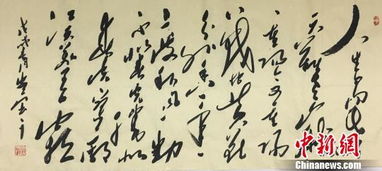 人生易老
天难老岁岁
重阳今又重阳
战地黄花
分外香一年
一度秋风劲
不似春光胜似
春光寥廓
江天万里霜
中新网
Chinanews.com